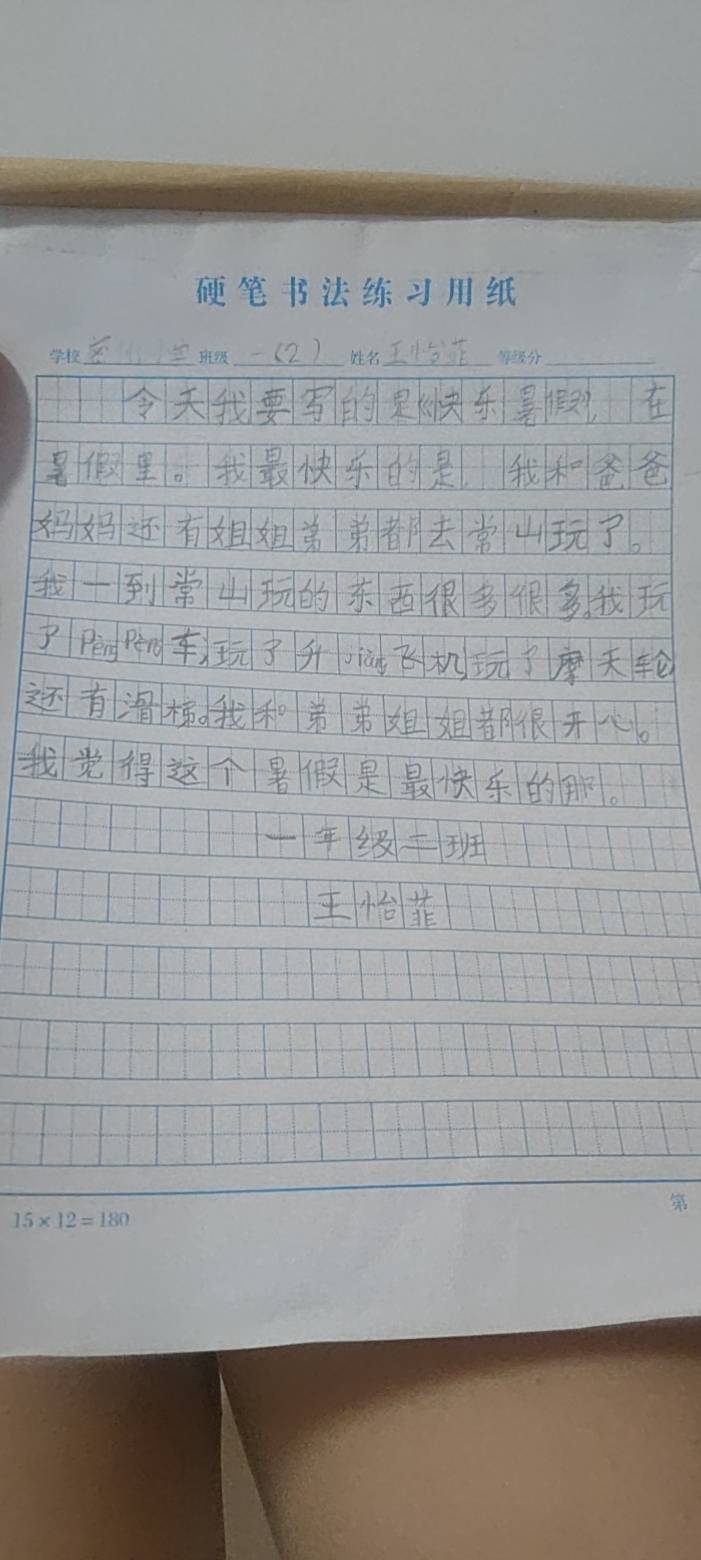 硬笔书法练习用纸
学校 班级 一(2) 姓名 王怡菲 等级分
今天我要写的是《快乐暑假》,在
暑假里。我最快乐的是,我和爸爸
妈妈还有姐姐弟弟都去常山玩了。
我一到常山玩的东西很多很多,我玩
了Pèng Pèng车,玩了升jiàng飞机,玩了摩天轮
还有滑梯。我和弟弟姐姐都很开心。
我觉得这个暑假是最快乐的啊。
一年级二班
王怡菲
15×12=180
第